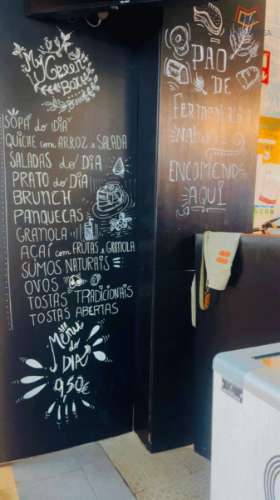 My Green
Bowl
SOPA do DIA
QUICHE com ARROZ e SALADA
SALADAS do DIA
PRATO do DIA
BRUNCH
PANQUECAS
GRANOLA
AÇAÍ com FRUTAS e GRANOLA
SUMOS NATURAIS
OVOS
TOSTAS TRADICIONAIS
TOSTAS ABERTAS
MENU
do
DIA
9,50€
PÃO
DE
FERMENTAÇÃO
NATURAL
ENCOMENDE
AQUI